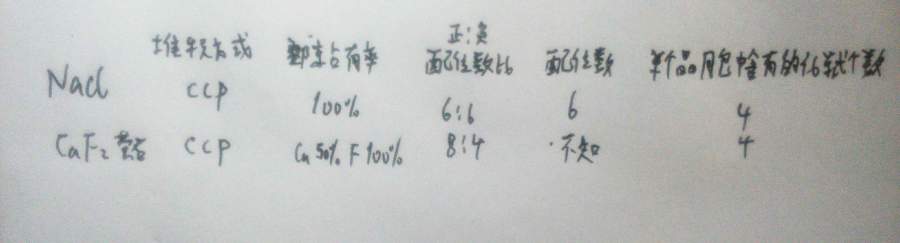 堆积方式 占有率 正:负 配位数比 配位数 单个晶胞中含有的化学式个数
NaCl ccp 100% 6:6 6 4
CaF₂ 萤石 ccp Ca 50% F 100% 8:4 ·不知 4